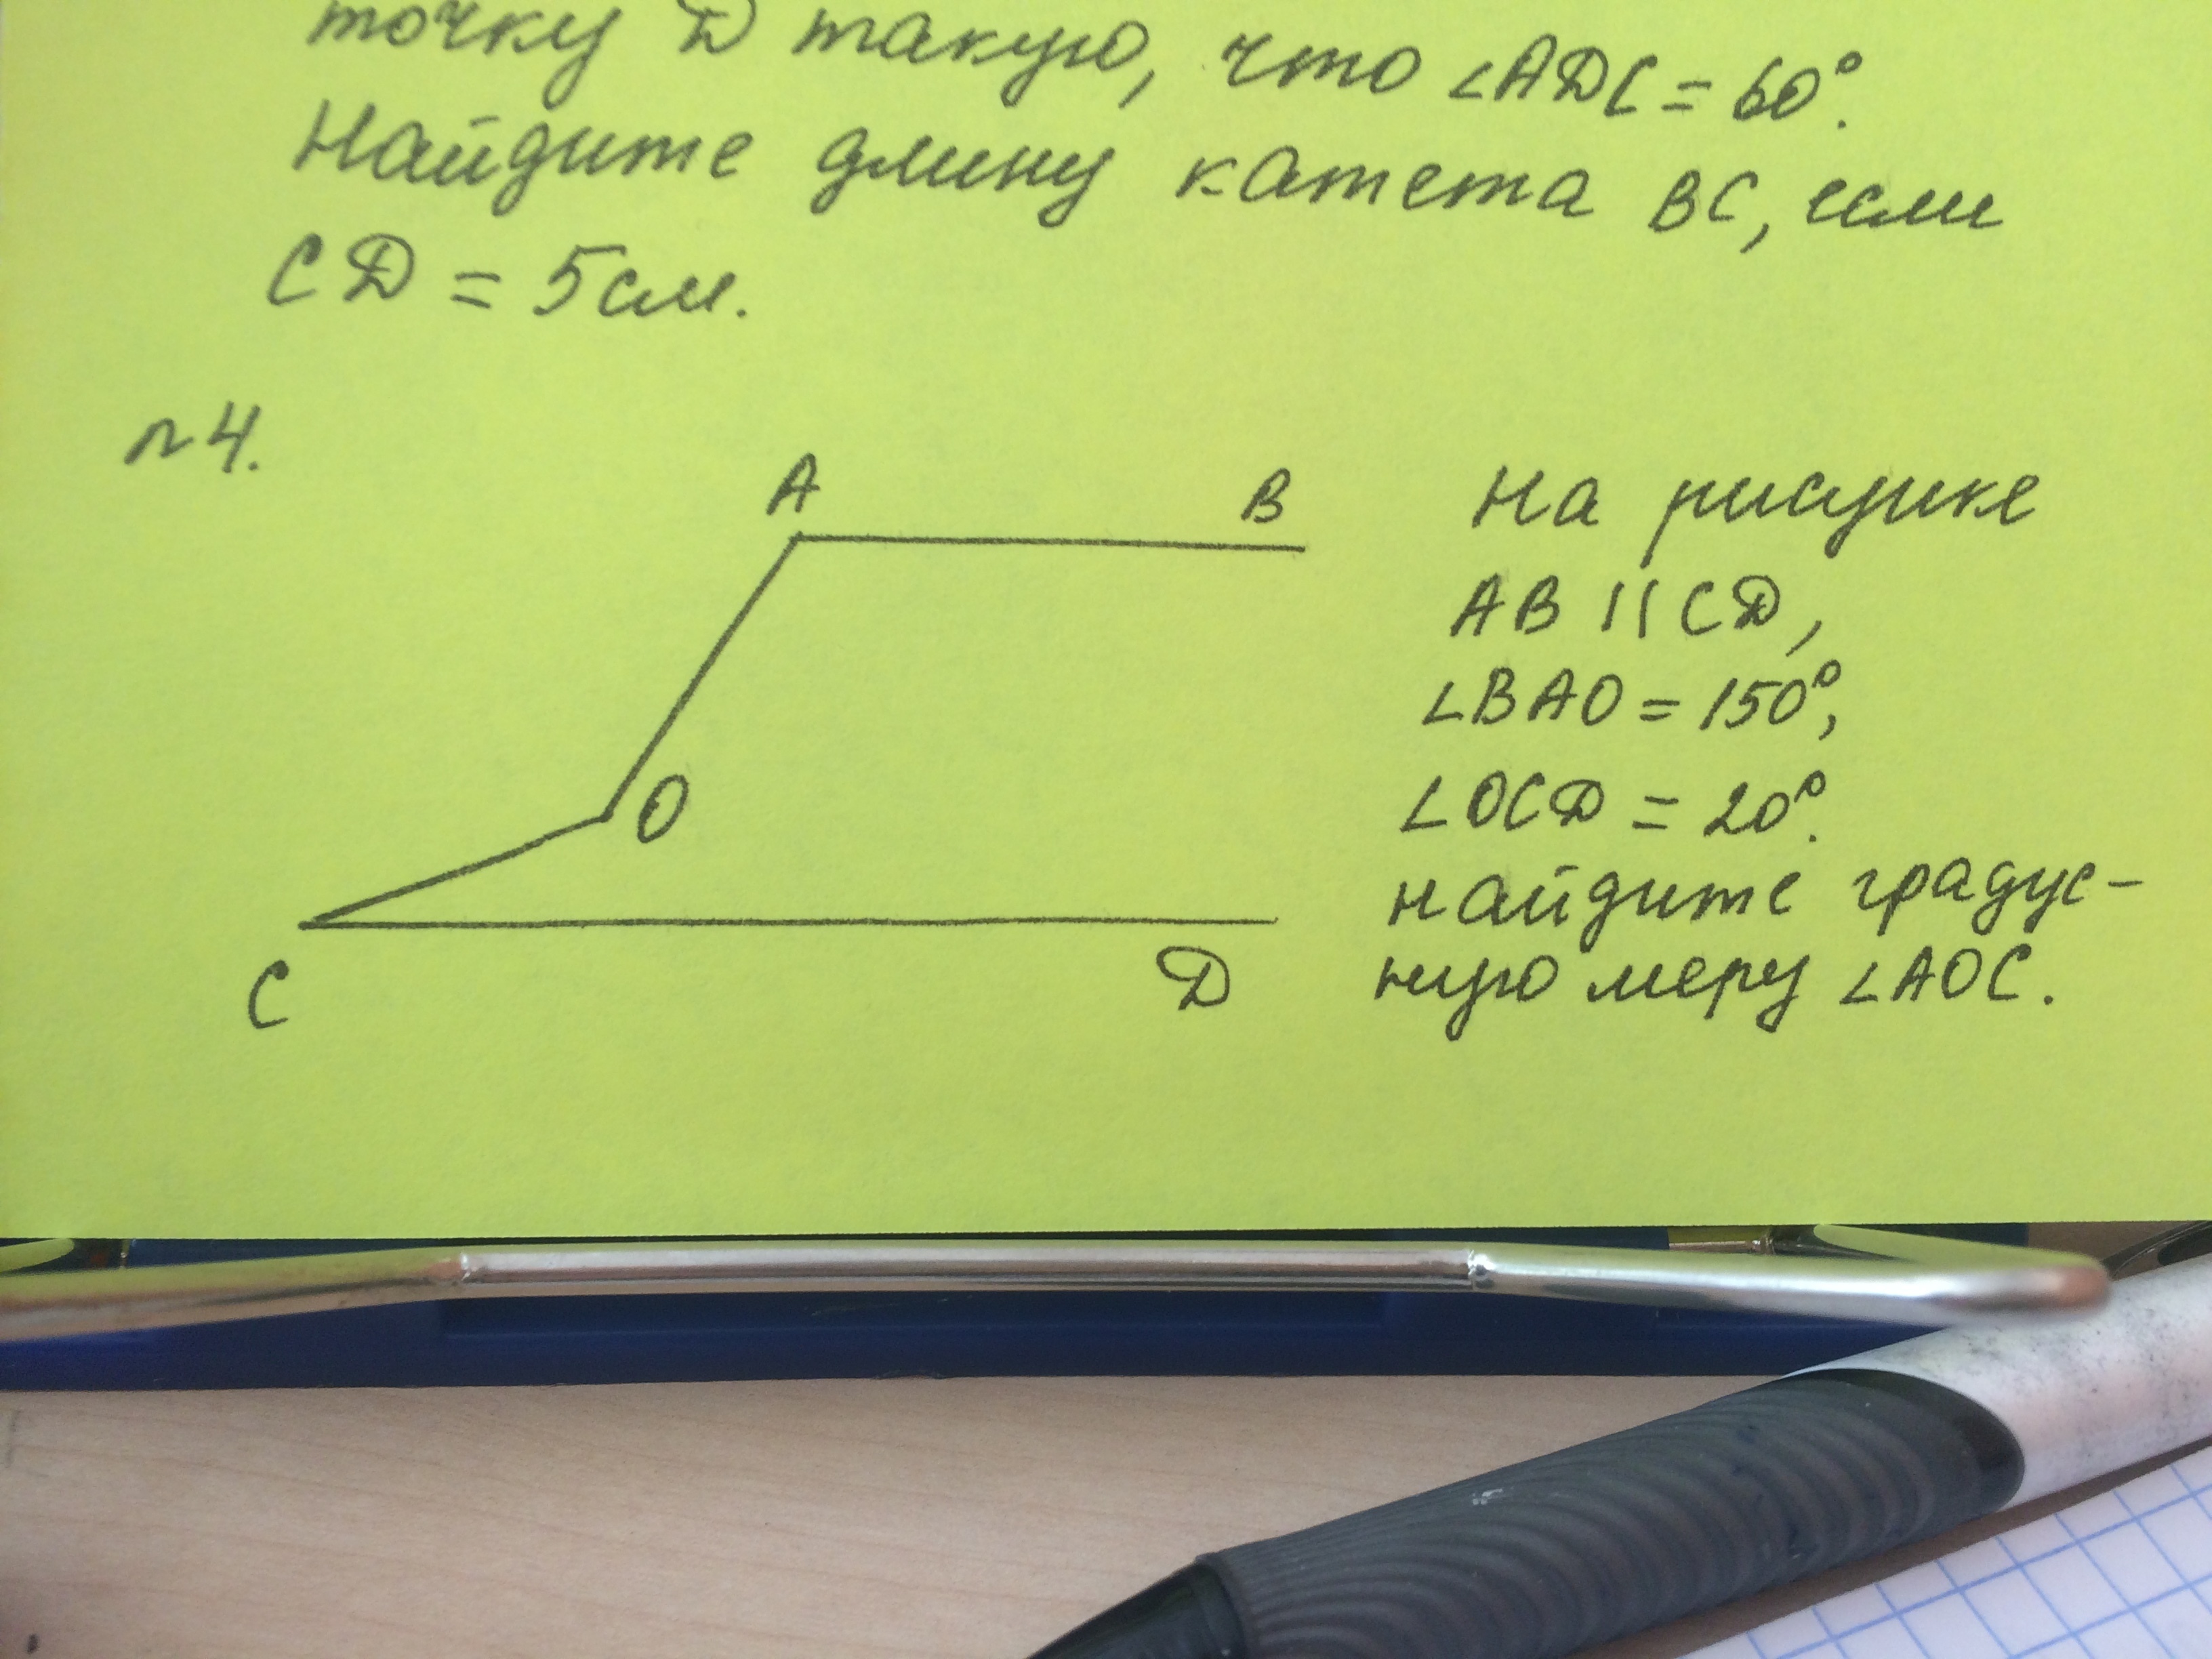 точку D такую, что ∠ADC = 60°.
Найдите длину катета BC, если
CD = 5 см.
n 4.
A
B
O
C
D
На рисунке
AB || CD,
∠BAO = 150°,
∠OCD = 20°.
Найдите градус-
ную меру ∠AOC.